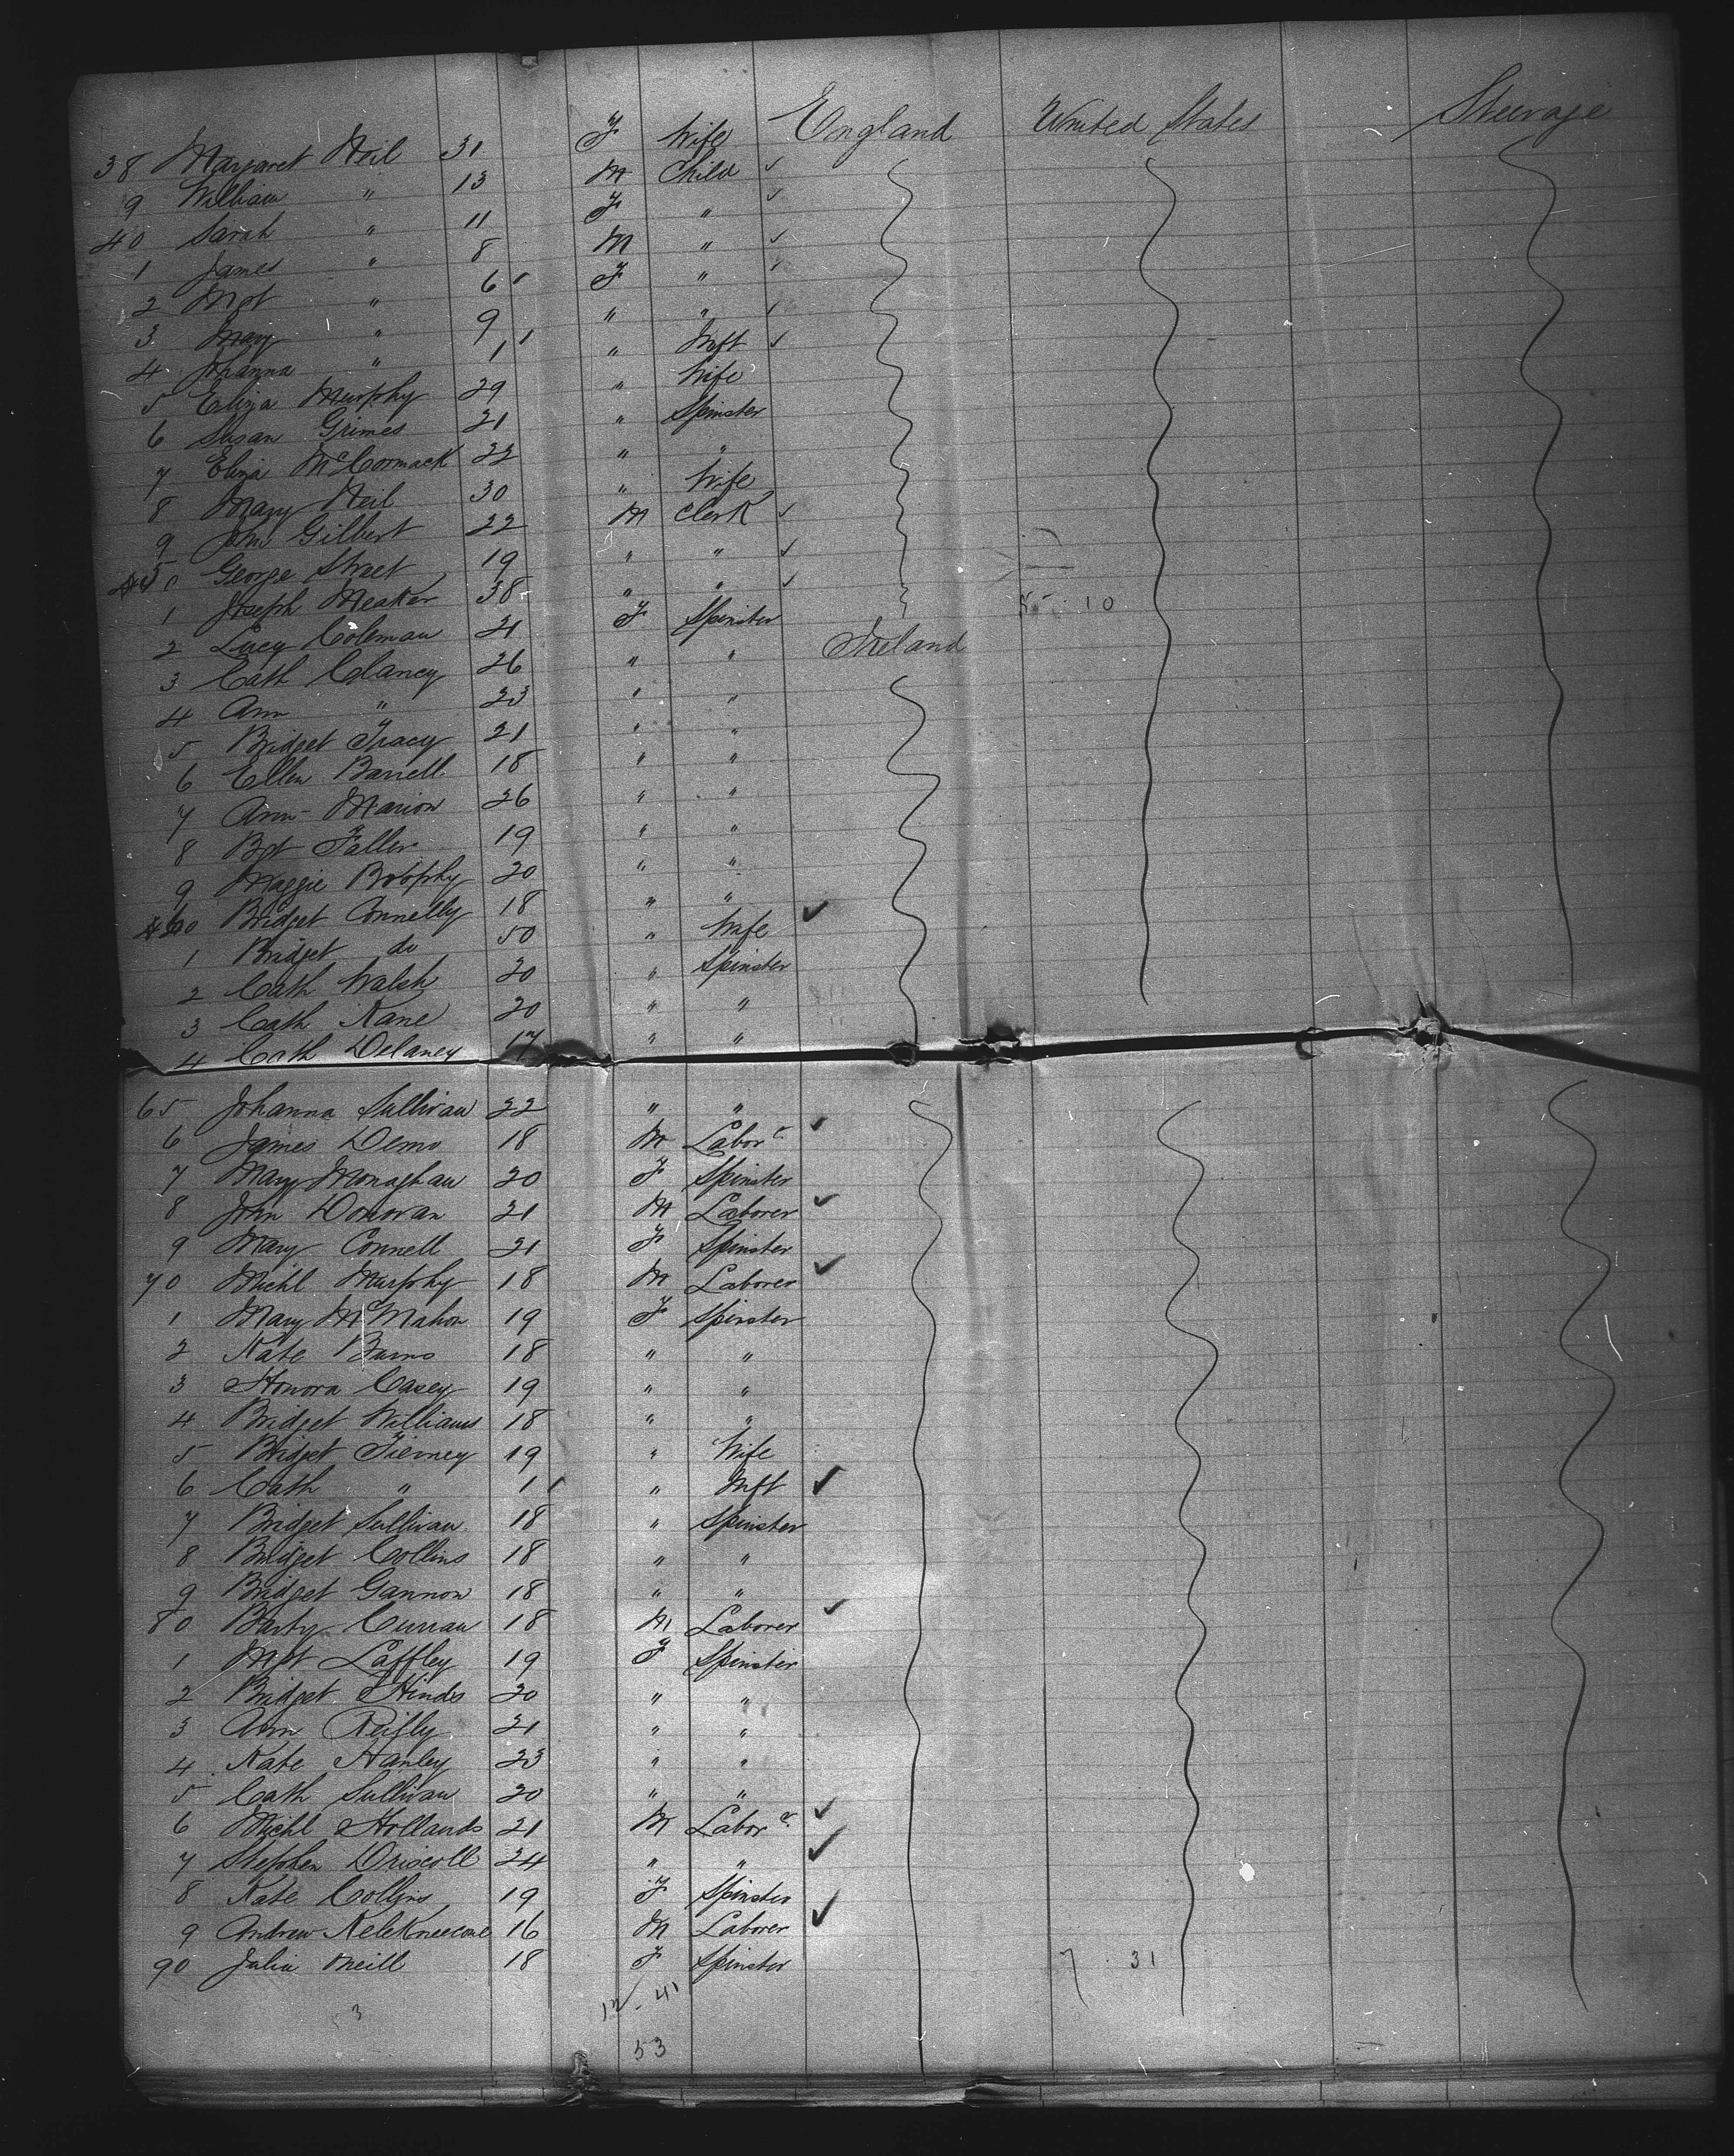 38 Margaret Neil 31 F Wife England United States Steerage
9 William " 13 M Child ✓
40 Sarah " 11 F " ✓
1 James " 8 M " ✓
2 Mgt " 6 F " ✓
3 Mary " 9 " " ✓
4 Johanna " 1 " Inft ✓
5 Eliza Murphy 29 " Wife
6 Susan Grimes 21 " Spinster
7 Eliza McCormack 22 " "
8 Mary Neil 30 " Wife
9 John Gilbert 22 M Clerk ✓
50 George Street 19 " " ✓
1 Joseph Meaker 38 " " ✓ 10
2 Lucy Coleman 21 F Spinster
3 Cath Clancy 26 " " Ireland
4 Ann " 23 " "
5 Bridget Tracy 21 " "
6 Ellen Barrell 18 " "
7 Ann Marion 26 " "
8 Bgt Faller 19 " "
9 Maggie 20 " "
60 Bridget Connelly 18 " "
1 Bridget do 50 " Wife ✓
2 Cath Walsh 20 " Spinster
3 Cath Kane 20 " "
4 Cath Delaney 17 " "
65 Johanna Sullivan 22 " "
6 James Demo 18 M Labor r. ✓
7 Mary Monaghan 20 F Spinster
8 John Donovan 21 M Laborer ✓
9 Mary Connell 21 F Spinster
70 Michl Murphy 18 M Laborer ✓
1 Mary McMahon 19 F Spinster
2 Kate Burns 18 " "
3 Honora Casey 19 " "
4 Bridget Williams 18 " "
5 Bridget Tierney 19 " Wife
6 Cath " 1 " Inft ✓
7 Bridget Sullivan 18 " Spinster
8 Bridget Collins 18 " "
9 Bridget Gannon 18 " "
80 Barty Curran 18 M Laborer ✓
1 Mgt Laffley 19 F Spinster
2 Bridget Hinds 20 " "
3 Ann Reilly 21 " "
4 Kate Hanley 23 " "
5 Cath Sullivan 20 " "
6 Michl Hollands 21 M Labor r. ✓
7 Stephen Driscoll 24 " " ✓
8 Kate Collins 19 F Spinster
9 Andrew 16 M Laborer ✓
90 Julia Oneill 18 F Spinster 7 . 31
12 . 41
53